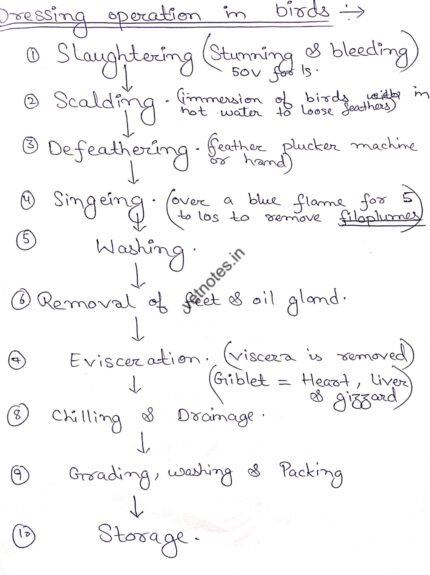 Dressing operation in birds :→
① Slaughtering (Stunning & bleeding)
50V for 1s.
② Scalding . (immersion of birds in
hot water to loose feathers)
③ Defeathering . (feather plucker machine
or hand)
④ Singeing . (over a blue flame for 5
to 10s to remove filoplumes)
⑤ Washing.
⑥ Removal of feet & oil gland.
⑦ Evisceration. (viscera is removed)
(Giblet = Heart, liver
& gizzard)
⑧ Chilling & Drainage.
⑨ Grading, washing & Packing
⑩ Storage.
vetnotes.in